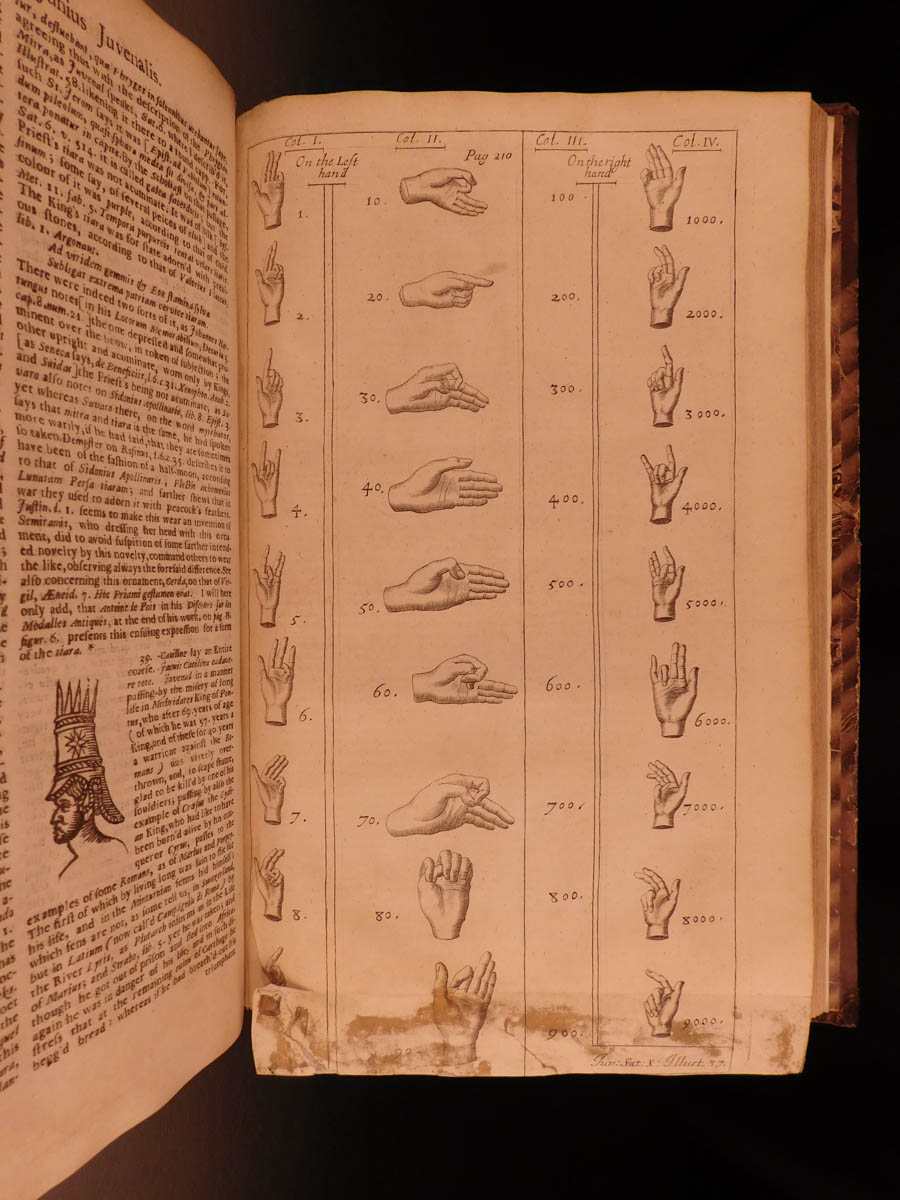 Juvenalis.
agreeing thus with the description of the
Mitra, as Juvenal speaks. Sat. 6. where
Illustrat. 58. likening it there to a
such St. Jerom says, it was,
Sat. 6. v. 514. it is called
Priest's tiara was not acuminate. It was of
sinum; some say, of several peices of cloth; and the
colour of it was purple, according to that of Ovid,
Met. 11. fab. 5. Tempora purpureis tentat velare tiaris.
The King's tiara was for state adorn'd with preti-
ous stones, according to that of Valerius Flaccus,
lib. 1. Argonaut.
Ad viridem gemmis & Eoe stamina sylvæ
Subligat extrema patriam cervice tiaram.
There were indeed two sorts of it, as Johannes
notes [in his Locorum Memorabilium,
cap. 8. num. 21. ] the one depressed and somewhat pro-
minent over the brow, in token of subjection; the
other upright and acuminate, worn only by Kings,
[ as Seneca says, de Beneficiis, l. 6. c. 31. Xenophon. Anab. 2.
and Suidas ] the Priest's being not acuminate, as Sa-
varo also notes on Sidonius Apollinaris, lib. 8. Epist. 3.
yet whereas Savaro there, on the word
says that mitra and tiara is the same, he had spoken
more warily, if he had said, that they are sometimes
so taken. Dempster on Rosinus, l. 6. c. 35. describes it to
have been of the fashion of a half-moon, according
to that of Sidonius Apollinaris, Flectit achæmenius
Lunatam Persa tiaram; and farther shews that in
war they used to adorn it with peacock's feathers.
Justin. l. 1. seems to make this wear an invention of
Semiramis, who dressing her head with this orna-
ment, did to avoid suspition of some farther intend-
ed novelty by this novelty, command others to wear
the like, observing always the foresaid difference. See
also concerning this ornament, Cerda, on that of Vir-
gil, Æneid. 7. Hoc Priami gestamen erat. I will here
only add, that Antoine de Pois in his Discours sur les
Medalles Antiques, at the end of his work, on pag. B.
figur. 6. presents this ensuing expression for a form
of the tiara. *
39. -Catiline lay an Entire
coarse. -Jacuit Catilina cadave-
re toto. Juvenal in a manner
passing-by the misery of long
life in Mithridates King of Pon-
tus, who after 69. years of age
( of which he was 57. years a
King, and of these for 40. years
a warriour against the Ro-
mans ) was utterly over-
thrown, and, to scape shame,
glad to be kill'd by one of his
souldiers; passing-by also the
example of Crœsus the Lydi-
an King, who had like to have
been burn'd alive by his con-
queror Cyrus, passes to the
examples of some Romans, as of Marius and Pompey.
The first of which by living long was fain to
his life, and in the Minturnian fenns hid himself;
which fens are not, as some tell us, in Switzerland,
but in Latium (now call'd Campagnia di Roma) by
the River Lyris, as Plutarch informs us in the Life
of Marius; and Strabo, lib. 5. yet he was taken; and
though he got out of prison and fled into Africa,
again he was in danger of his life; and in such di-
stress that at the remaining ruins of Carthage he
begg'd bread: whereas if he had breath'd-out his
triumphant
Col. I.
Col. II.
Col. III.
Col. IV.
On the Left
hand
Pag 210
On the right
hand
1.
10.
100.
1000.
2.
20.
200.
2000.
3.
30.
300.
3000.
4.
40.
400.
4000.
5.
50.
500.
5000.
6.
60.
600.
6000.
7.
70.
700.
7000.
8.
80.
800.
8000.
90.
900.
9000.
Juv. Sat. X. Illust. 37.